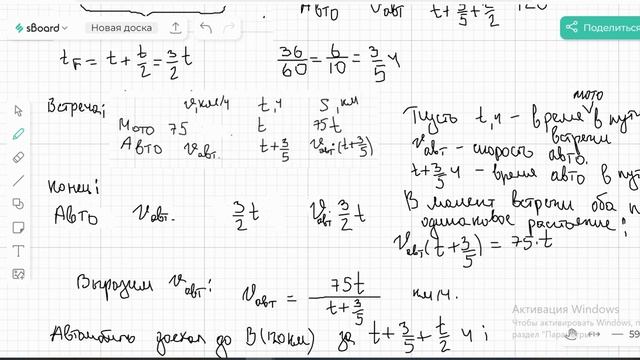 sBoard
Новая доска
Авто Vавт t+3/5+t/2 120
Поделиться
tF = t + t/2 = 3/2 t
36/60 = 6/10 = 3/5 ч
Встреча:
V, км/ч t, ч S, км
Мото 75 t 75t
Авто Vавт. t+3/5 Vавт·(t+3/5)
Конец:
Авто Vавт. 3/2 t Vавт· 3/2 t
мото
Пусть t, ч – время в пути
встречи
Vавт – скорость авто.
t+3/5 ч – время авто в пути
В момент встречи оба п
одинаковое расстояние:
Vавт(t+3/5) = 75·t
Выразим Vавт: Vавт = 75t/(t+3/5) км/ч.
Автомобиль доехал до В(120км) за t+3/5+t/2 ч;
Активация Windows
Чтобы активировать Windows, п
раздел "Парам
59